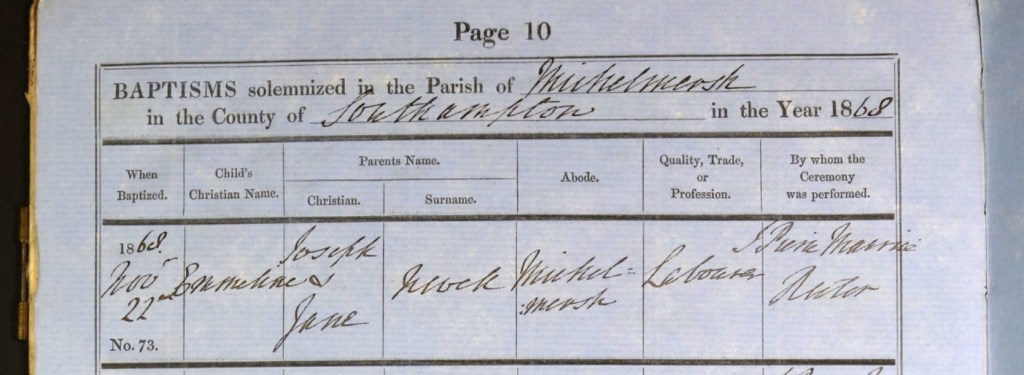 Page 10
BAPTISMS solemnized in the Parish of Michelmersh
in the County of Southampton in the Year 1868
When Baptized.
Child's Christian Name.
Parents Name.
Christian.
Surname.
Abode.
Quality, Trade, or Profession.
By whom the Ceremony was performed.
1868.
Novr
22nd
No. 73.
Emmeline
Joseph
&
Jane
Michel=
:mersh
Labourer